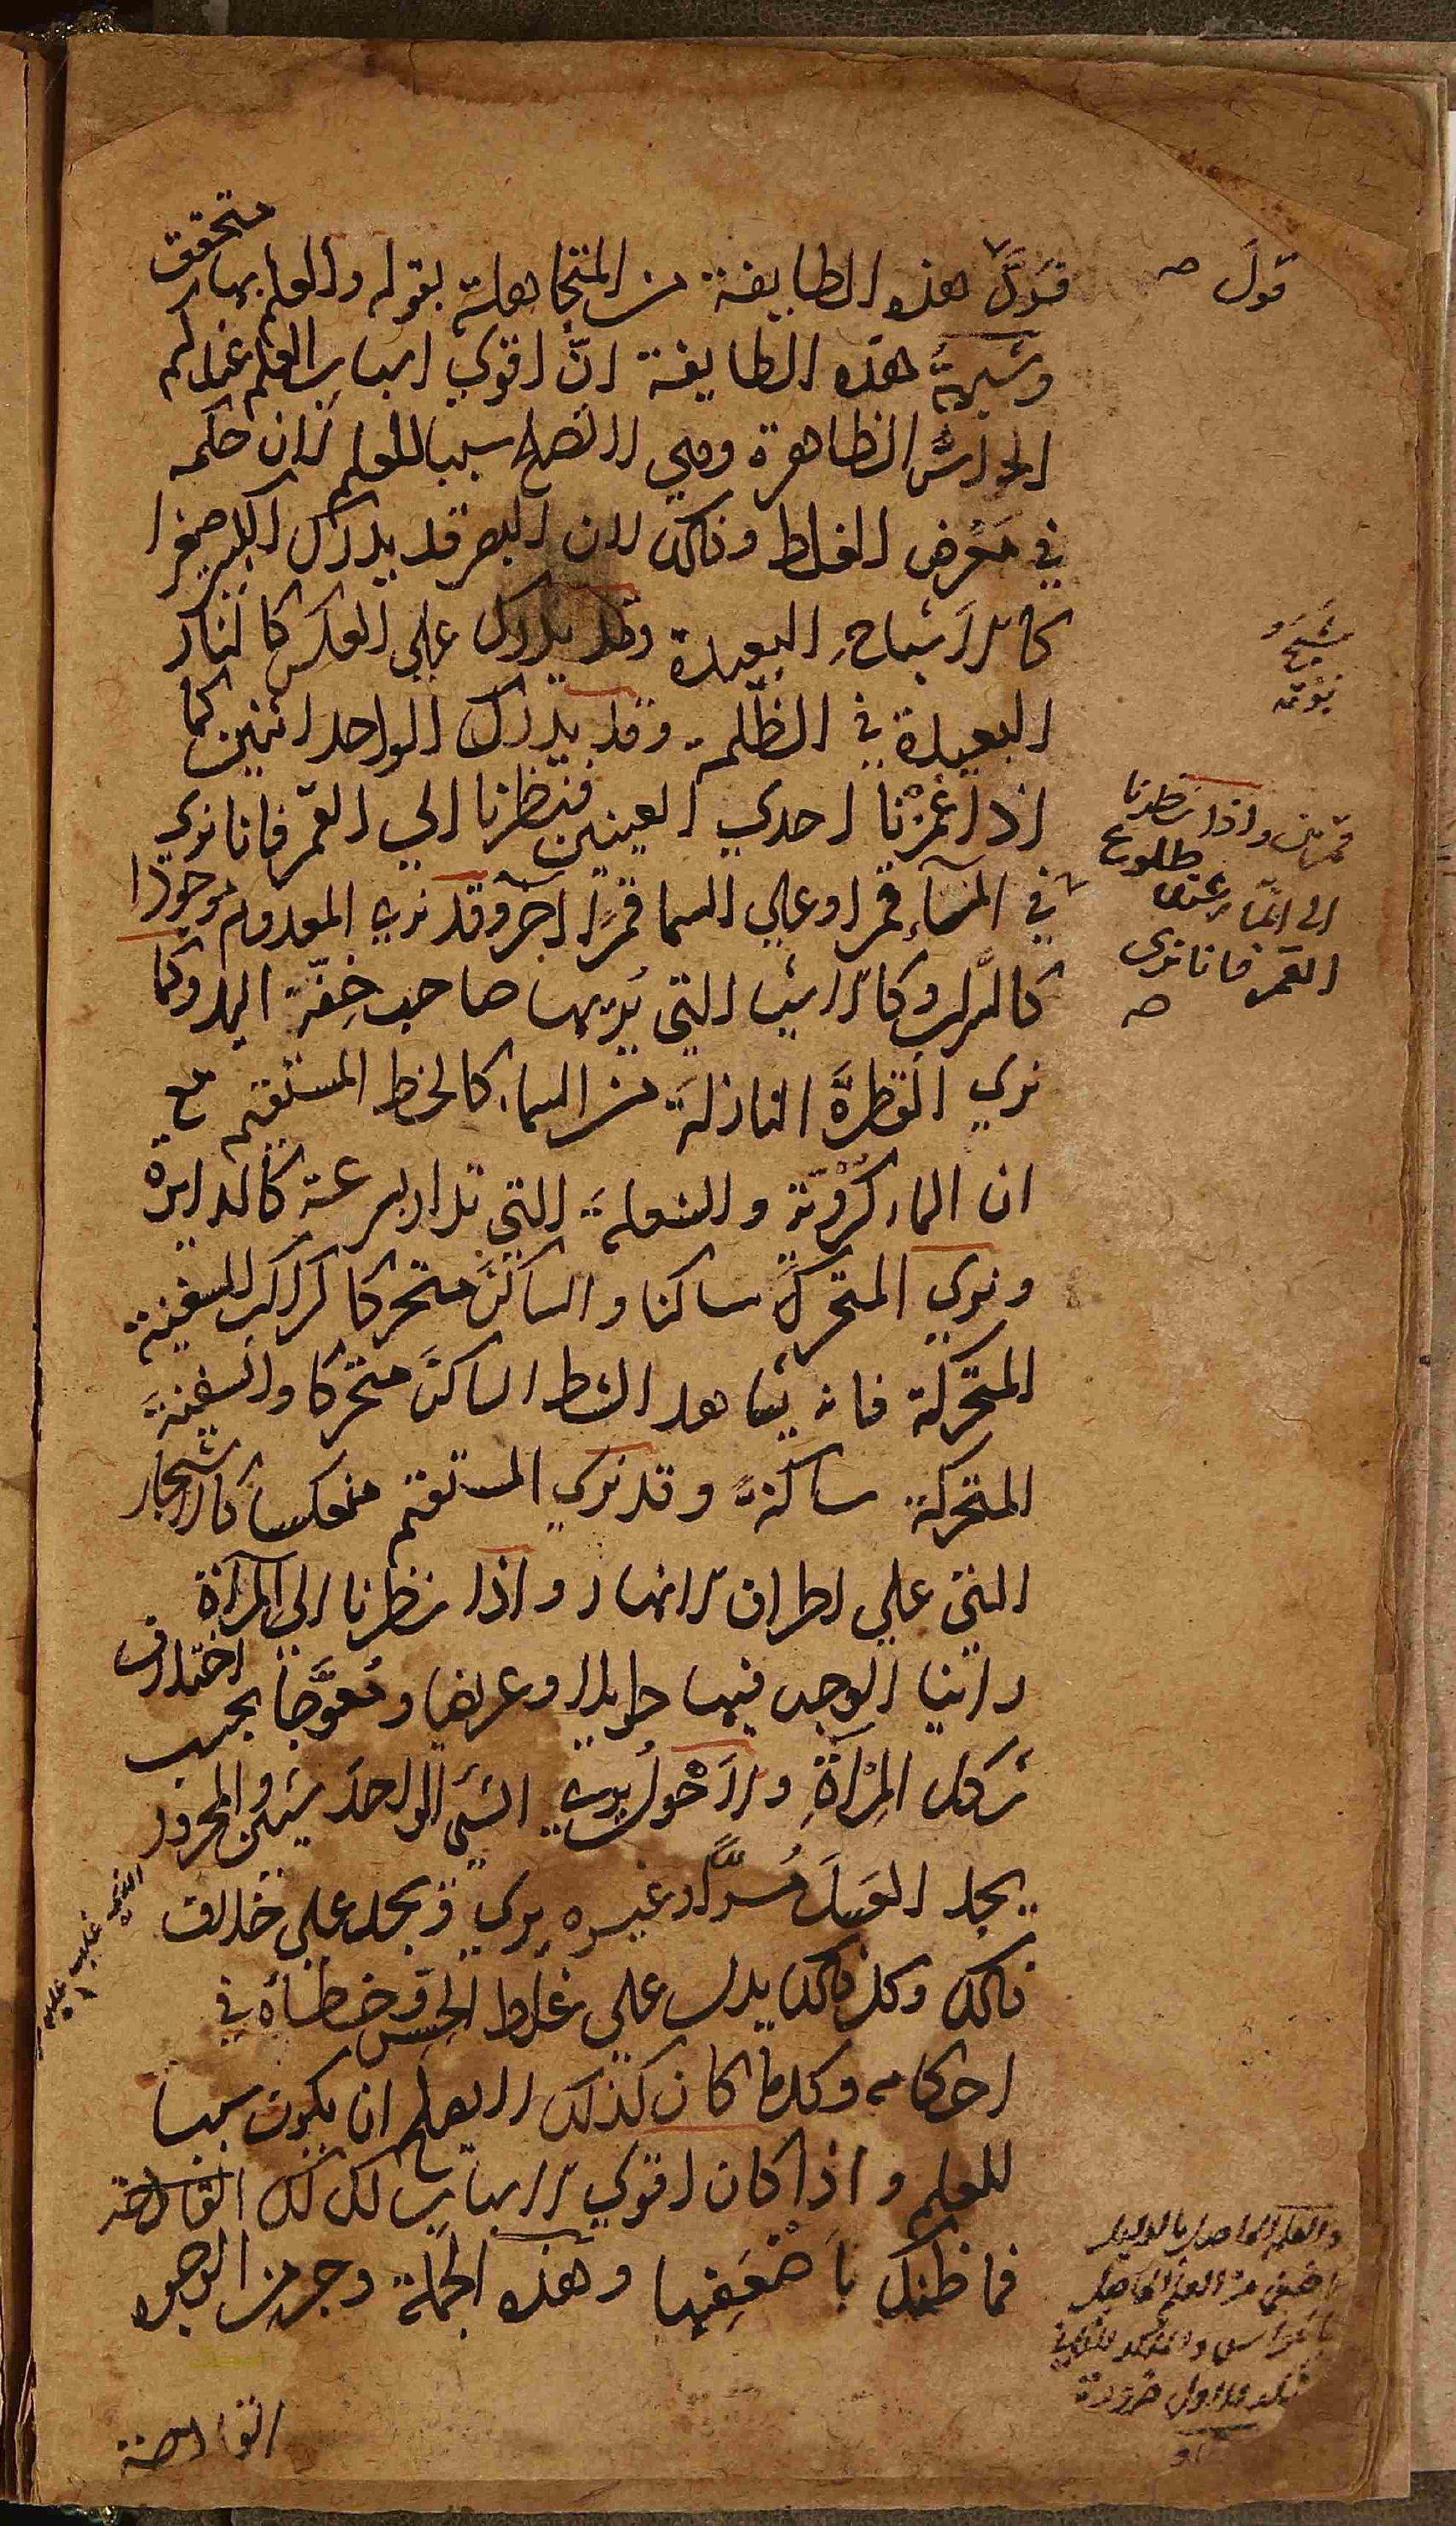 قولَ هذه الطايفة من المتجاهلة بقوله والعلم بها متحقق
وشبهةُ هذه الطايفة انّ اقوي اسباب العلم عندكم
الحواسُّ الظاهرة وهي لا تصلح سببا للعلم لان حكمه
في مَعْرض الغلط وذلك لان البصر قد يدرك الكبير صغيرا
كالاَشباحِ البعيدة وقد يدرك علي العكس كالنار
البعيدة في الظلمة وقد يدرك الواحد اثنين كما
اذا غمزْنا احدي العينين فنظرنا الي القمر فانا نري
في المآءِ قمرا وعلي السما قمرًا آخر وقد نري المعدوم موجودًا
كالسراب وكالاشيا التي يُريها صاحب خِفّة اليد وكما
نري القطرةَ النازلةَ من السماء كالخط المستقيم مع
ان الماء كُرَوِيّة والشعلةَ التي تدار بسرعة كالدايرة
ونري المتحركَ ساكنا والساكنَ متحركا كراكب السفينة
المتحركة فانه يشاهد الشط الساكنَ متحركا والسفينةَ
المتحركة ساكنةً وقد نري المستقيم منعكساً كالاشجار
التي علي اطراف الانهار واذا نظرنا الي المرآة
راينا الوجه فيها طويلا وعريضا ومُعوَّجا بحسب اختلاف
شكل المِرْآةِ والاَحْولُ يري الشيَ الواحدَ شيئين والمحرور
يجد العَسلَ مُرًّا وغيره يري ويجد علي خلاف
ذلك وكل ذلك يدل علي غلط الحس وخطأه في
احكامه وكلما كان كذلك لا يصلح ان يكون سببا
للعلم واذا كان اقوي الاسباب كذلك
فما ظنك باَضْعَفِها وهذه الجملة وجه من الوجوه
قولَ صح
شَبَحٌ
قمرين واذا نظرنا
الي المآء عند طلوع
القمر فانا نري
صح
الذي غلب عليه
والعلم الحاصل بالدليل
اضعف من العلم الحاصل
بالحواس